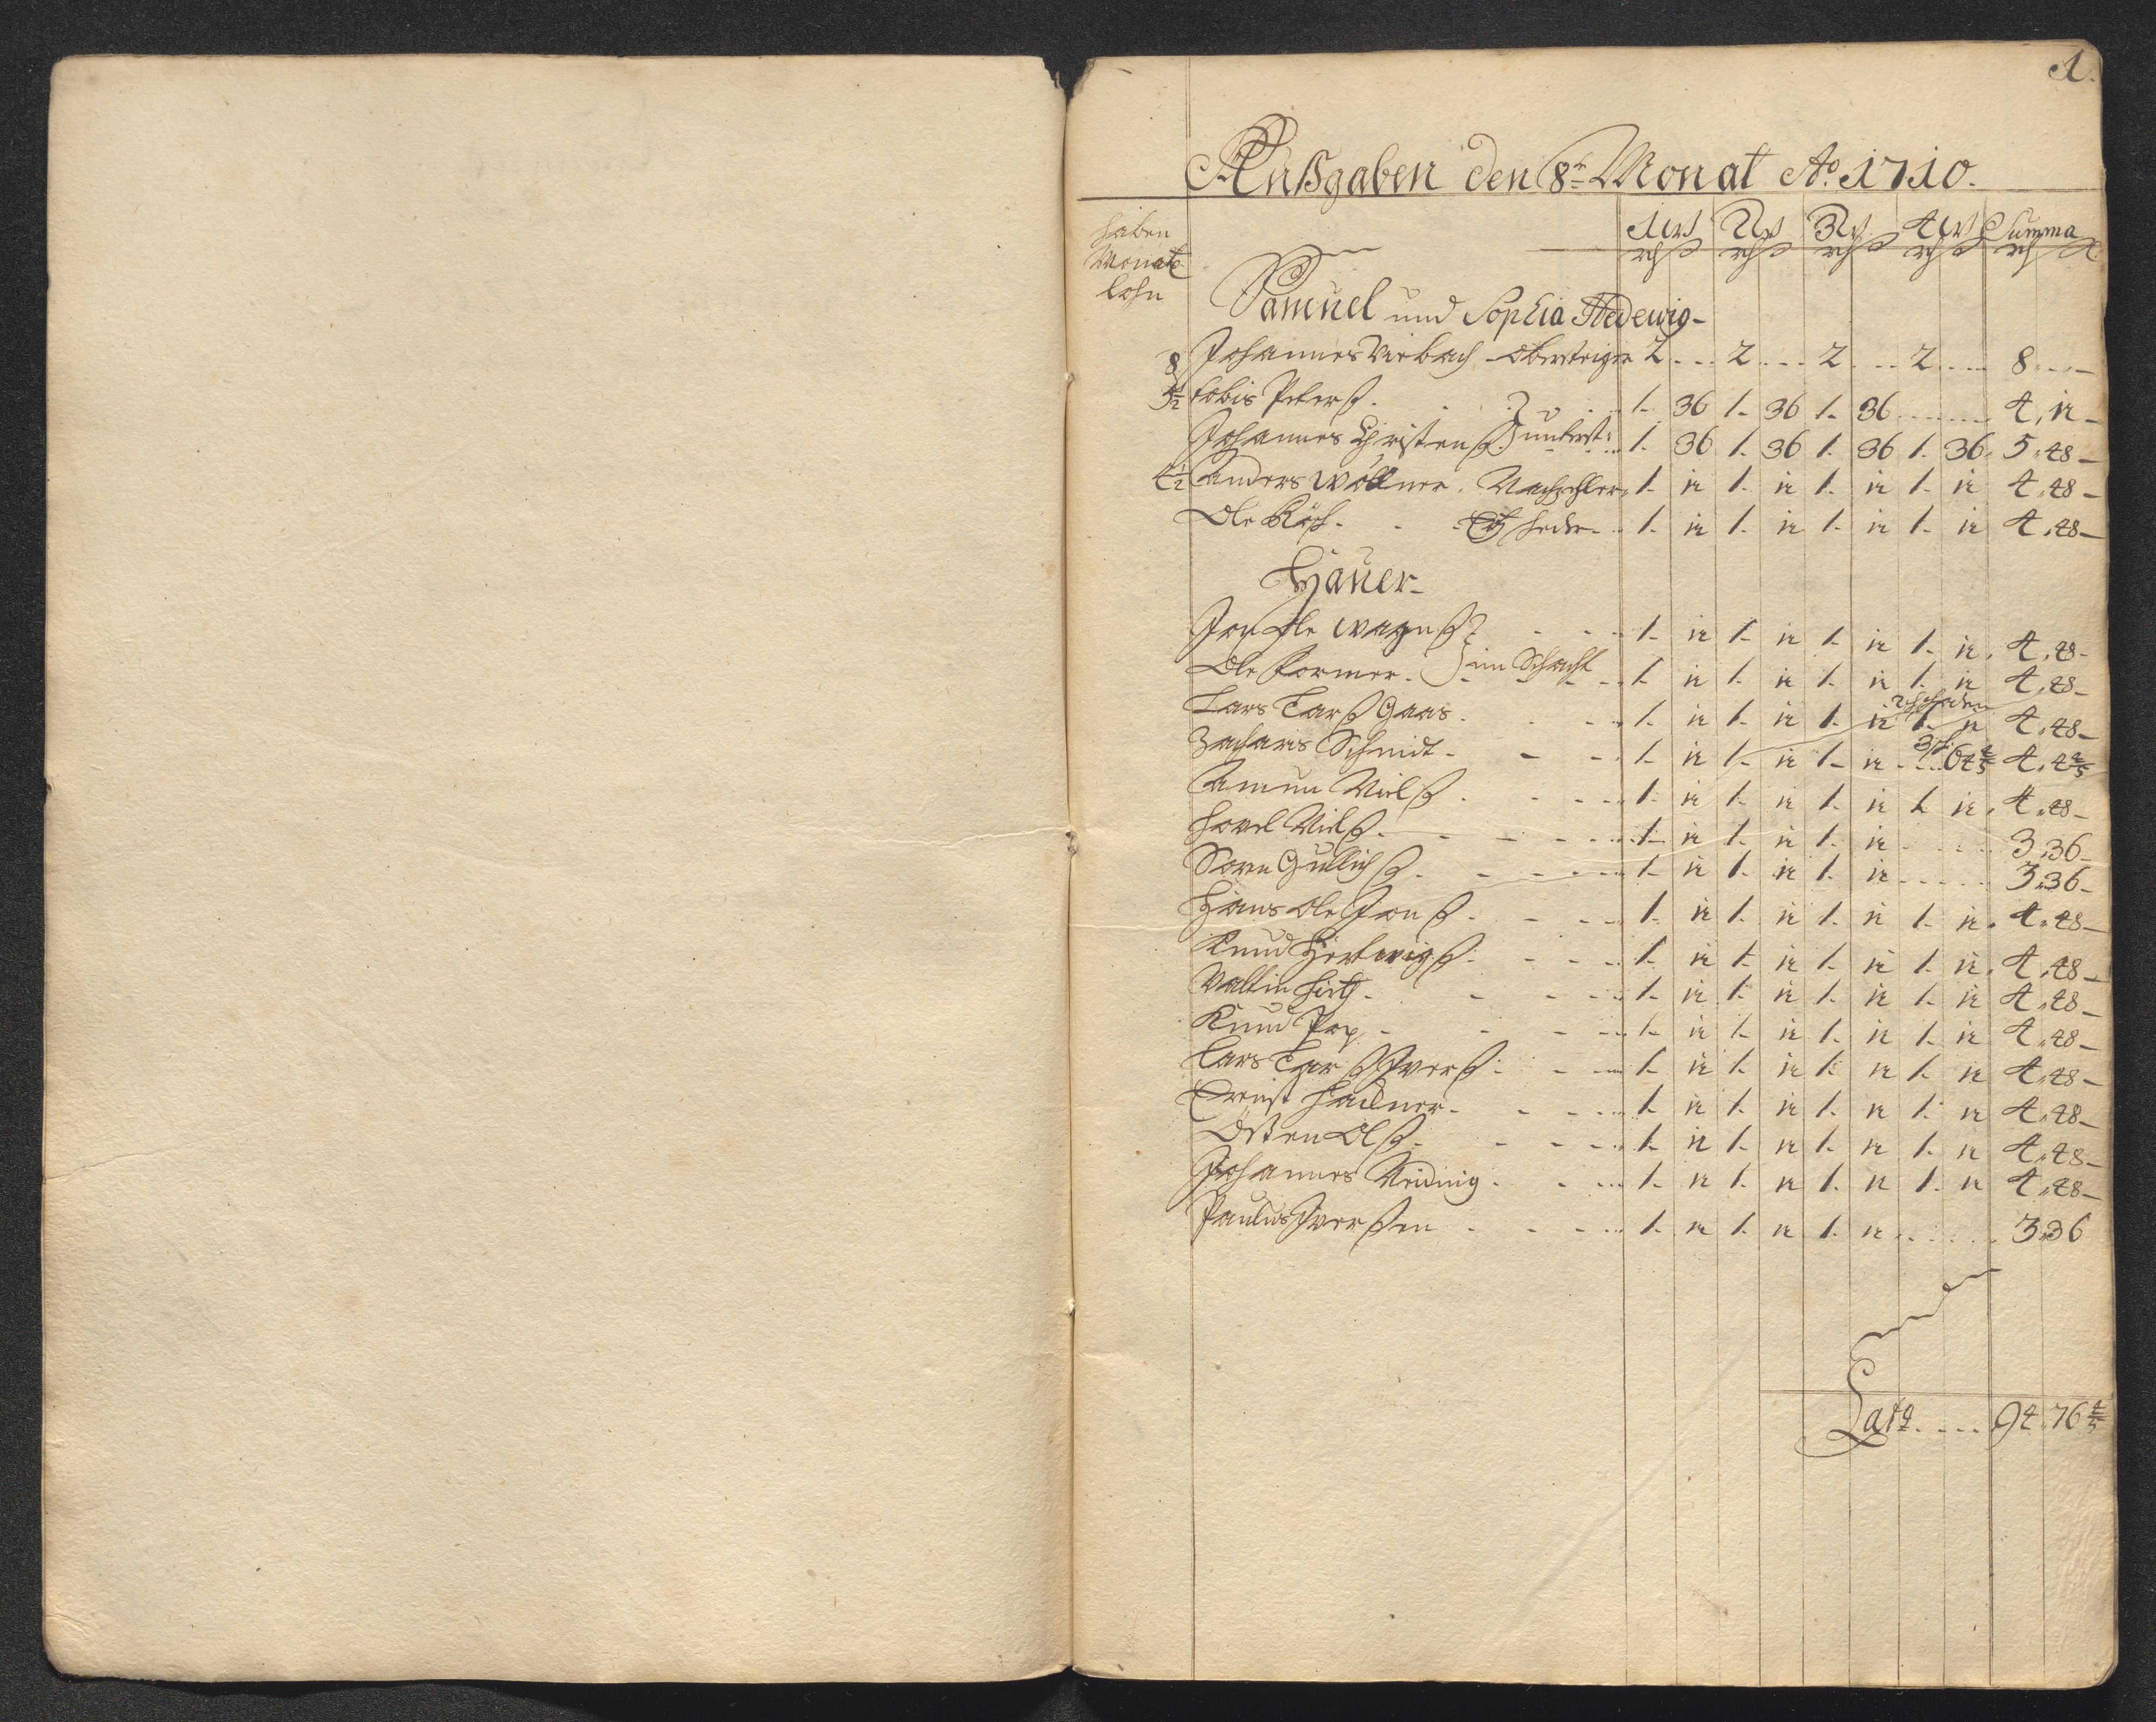 1.
Außgaben den 8t Monat Ao. 1710.
haben Monats lohn
1 W 2 W 3 W 4 W Summa
rh ß rh ß rh ß rh ß rh ß
Samuel und Sophia Hedewig
8 Johannes Viebach Obersteiger 2 - 2 - 2 - 2 - 8 -
5 1/2 Tobis Peterß. 1. 36 1. 36 1. 36 - 4. 12 -
Johannes Christenß. unterst: 1. 36 1. 36 1. 36 1. 36 5. 48 -
4 1/2 Anders Wöllner. Nachzehler 1. 12 1. 12 1. 12 1. 12 4. 48 -
Ole Röß - 1. 12 1. 12 1. 12 1. 12 4. 48 -
Häuer
Jon Ole Wagnß 1. 12 1. 12 1. 12 1. 12 4. 48 -
Ole Former. im Schacht 1. 12 1. 12 1. 12 1. 12 4. 48 -
Lars Larß Gaas 1. 12 1. 12 1. 12 1. 12 4. 48 -
Zacharis Schmidt 1. 12 1. 12 1. 12 64 4/5 4. 4 4/5
Amun Nielß 1. 12 1. 12 1. 12 1. 12 4. 48 -
Hovel Nielß 1. 12 1. 12 1. 12 - 3. 36 -
Sorn Gullichß 1. 12 1. 12 1. 12 - 3. 36 -
Hans Ole Jonß 1. 12 1. 12 1. 12 1. 12 4. 48 -
Knud Hertwigß 1. 12 1. 12 1. 12 1. 12 4. 48 -
Valtin Hirth 1. 12 1. 12 1. 12 1. 12 4. 48 -
Knud Pop 1. 12 1. 12 1. 12 1. 12 4. 48 -
Lars Larß Iverß 1. 12 1. 12 1. 12 1. 12 4. 48 -
Ernst Hackner 1. 12 1. 12 1. 12 1. 12 4. 48 -
Östen Olß 1. 12 1. 12 1. 12 1. 12 4. 48 -
Johannes Neiding 1. 12 1. 12 1. 12 1. 12 4. 48 -
Paulus Iverßen 1. 12 1. 12 1. 12 - 3. 36
Latq 94. 76 4/5